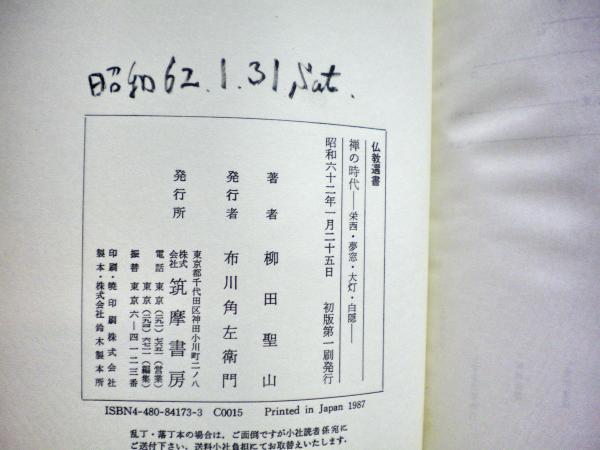 昭和62.1.31,Sat.
仏教選書
禅の時代――栄西・夢窓・大灯・白隠――
昭和六十二年一月二十五日 初版第一刷発行
著者 柳田聖山
発行者 布川角左衛門
発行所 株式会社 筑摩書房
東京都千代田区神田小川町二ノ八
電話 東京(二九一)七六五一(営業)
東京(二九四)六七一一(編集)
振替 東京六―四一二三番
印刷・暁印刷株式会社
製本・株式会社鈴木製本所
ISBN4-480-84173-3 C0015 Printed in Japan 1987
乱丁・落丁本の場合は、ご面倒ですが小社読者係宛に
ご送付下さい。送料小社負担にてお取替えいたします。